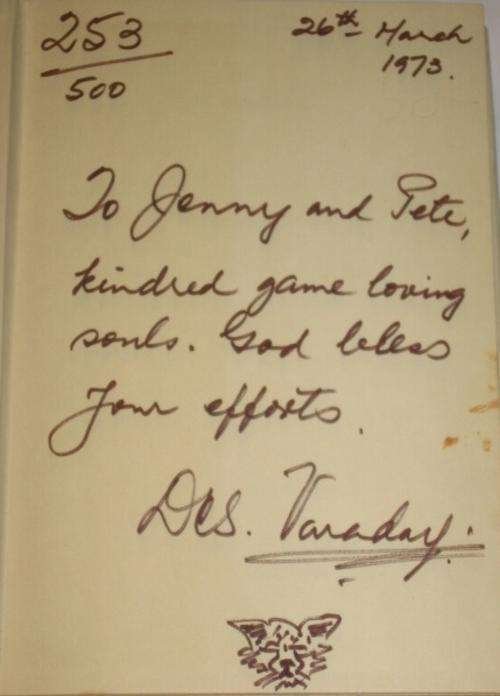 253
500
26th March
1973.
To Jenny and Pete,
kindred game loving
souls. God bless
your efforts.
Des. Varaday.